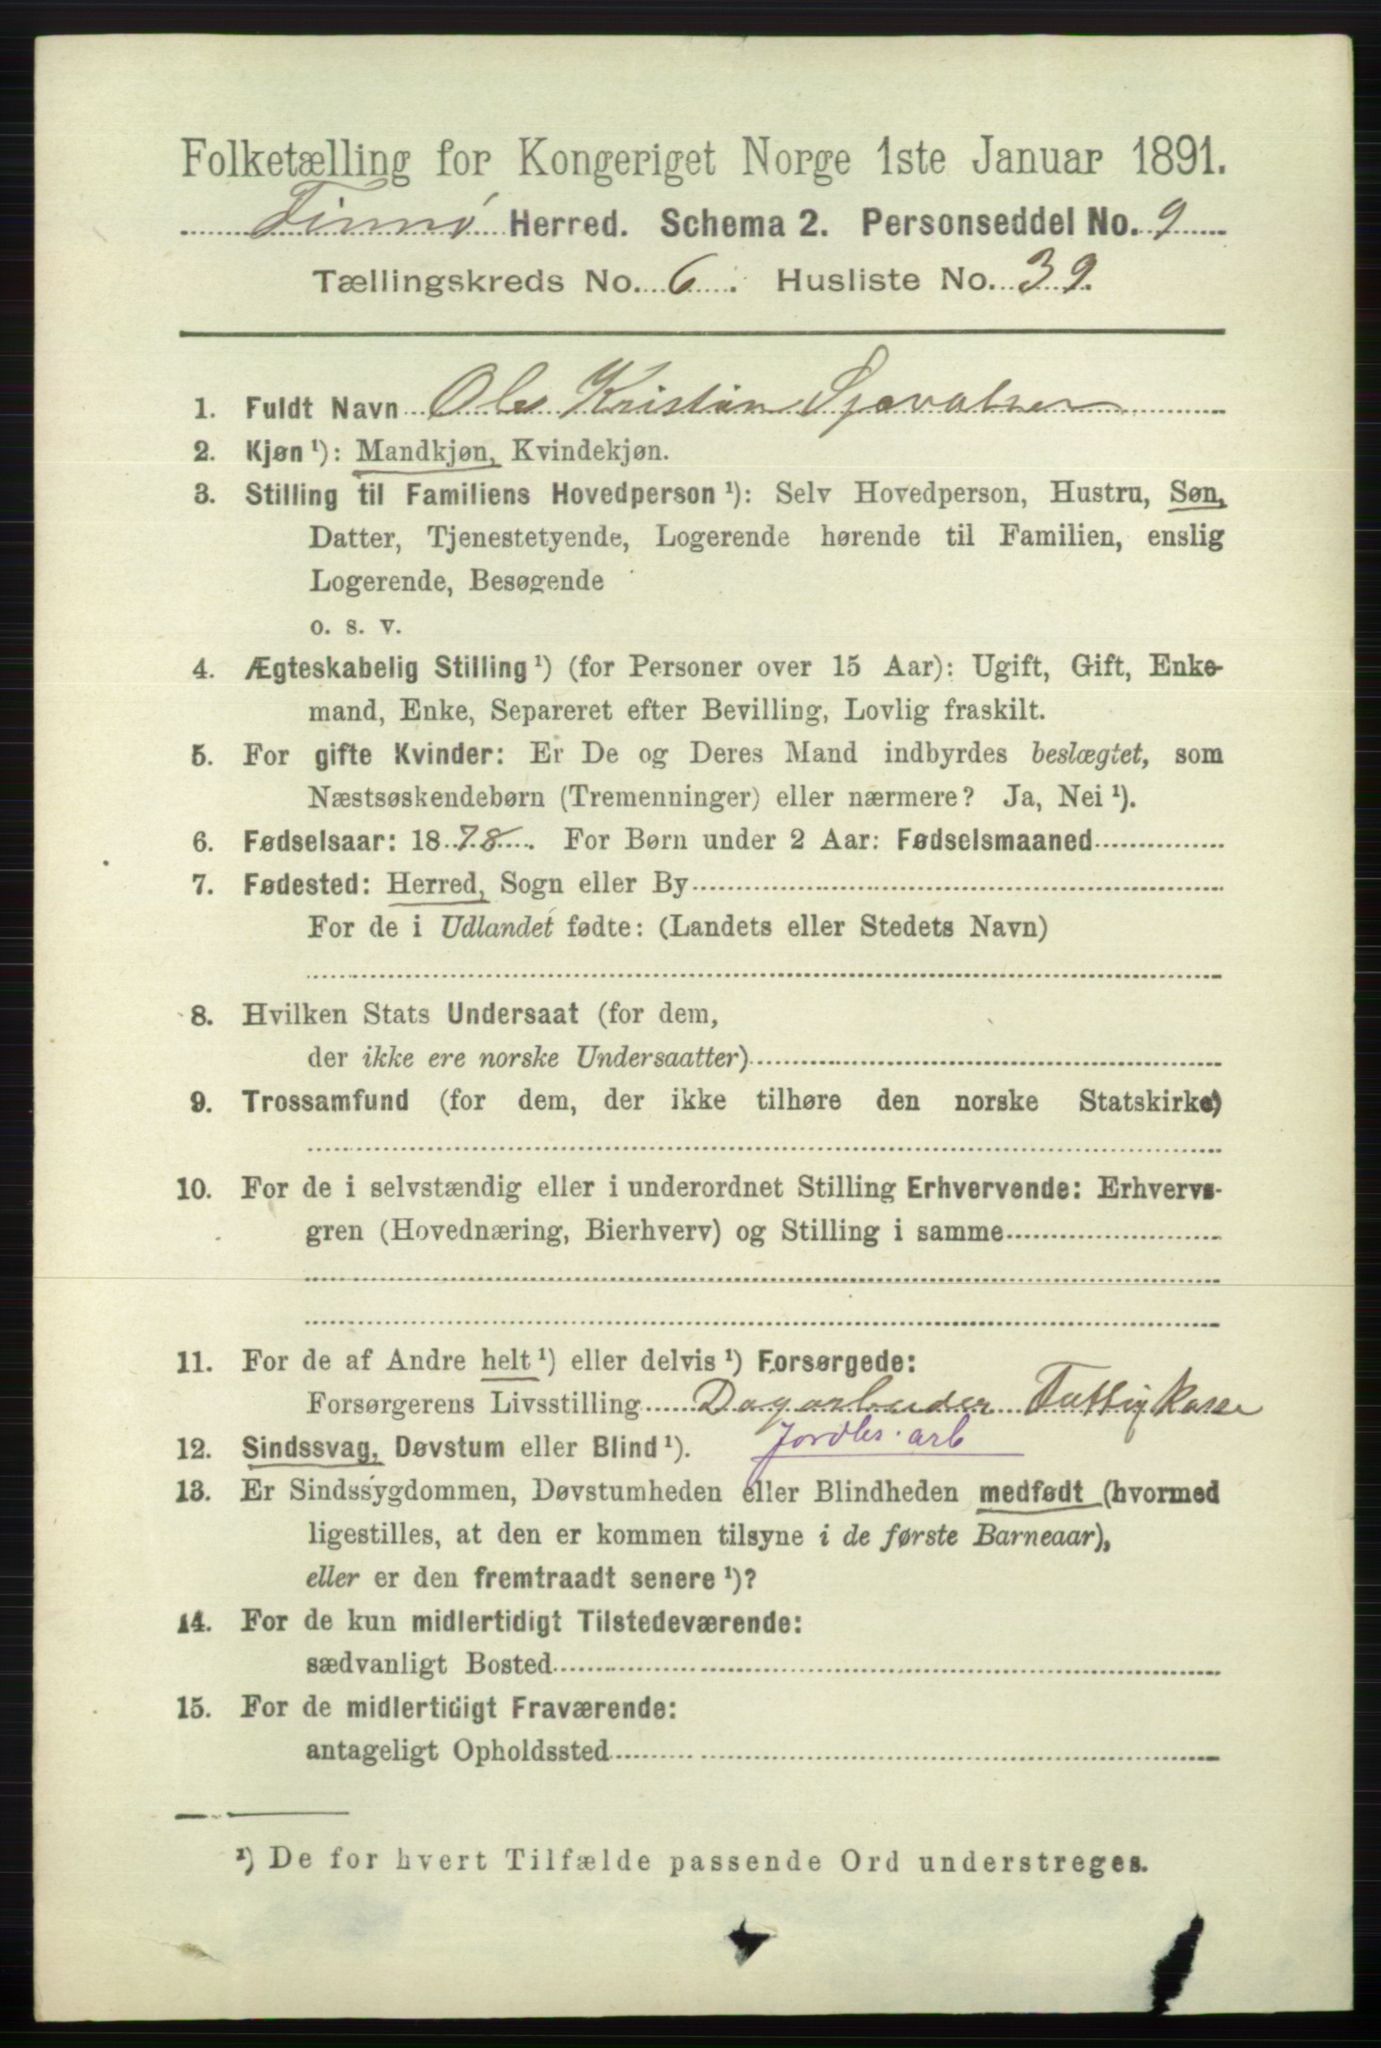 Folketælling for Kongeriget Norge 1ste Januar 1891.
Finnø Herred. Schema 2. Personseddel No. 9
Tællingskreds No. 6. Husliste No. 39.
1. Fuldt Navn Ole Kristian Sjovalsen
2. Kjøn ¹): Mandkjøn, Kvindekjøn.
3. Stilling til Familiens Hovedperson ¹): Selv Hovedperson, Hustru, Søn,
Datter, Tjenestetyende, Logerende hørende til Familien, enslig
Logerende, Besøgende
o. s. v.
4. Ægteskabelig Stilling ¹) (for Personer over 15 Aar): Ugift, Gift, Enke-
mand, Enke, Separeret efter Bevilling, Lovlig fraskilt.
5. For gifte Kvinder: Er De og Deres Mand indbyrdes beslægtet, som
Næstsøskendebørn (Tremenninger) eller nærmere? Ja, Nei ¹).
6. Fødselsaar: 1878. For Børn under 2 Aar: Fødselsmaaned
7. Fødested: Herred, Sogn eller By
For de i Udlandet fødte: (Landets eller Stedets Navn)
8. Hvilken Stats Undersaat (for dem,
der ikke ere norske Undersaatter)
9. Trossamfund (for dem, der ikke tilhøre den norske Statskirke)
10. For de i selvstændig eller i underordnet Stilling Erhvervende: Erhvervs-
gren (Hovednæring, Bierhverv) og Stilling i samme
11. For de af Andre helt ¹) eller delvis ¹) Forsørgede:
Forsørgerens Livsstilling Dagarbeider Fattigkasse
12. Sindssvag, Døvstum eller Blind ¹). Jordbr. arb
13. Er Sindssygdommen, Døvstumheden eller Blindheden medfødt (hvormed
ligestilles, at den er kommen tilsyne i de første Barneaar),
eller er den fremtraadt senere ¹)?
14. For de kun midlertidigt Tilstedeværende:
sædvanligt Bosted
15. For de midlertidigt Fraværende:
antageligt Opholdssted
¹) De for hvert Tilfælde passende Ord understreges.